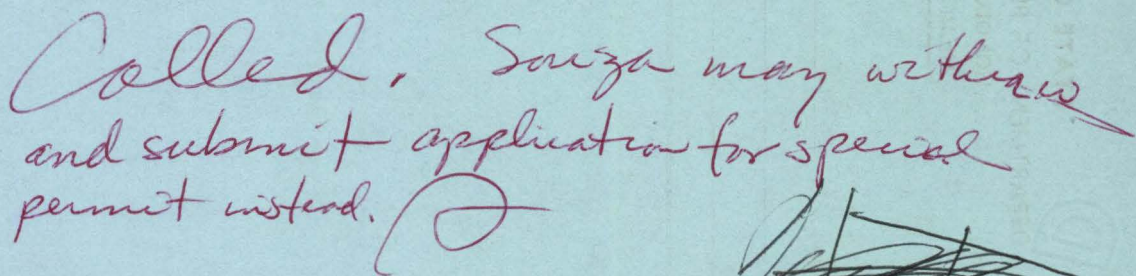 Called. Souza may withdraw
and submit application for special
permit instead.